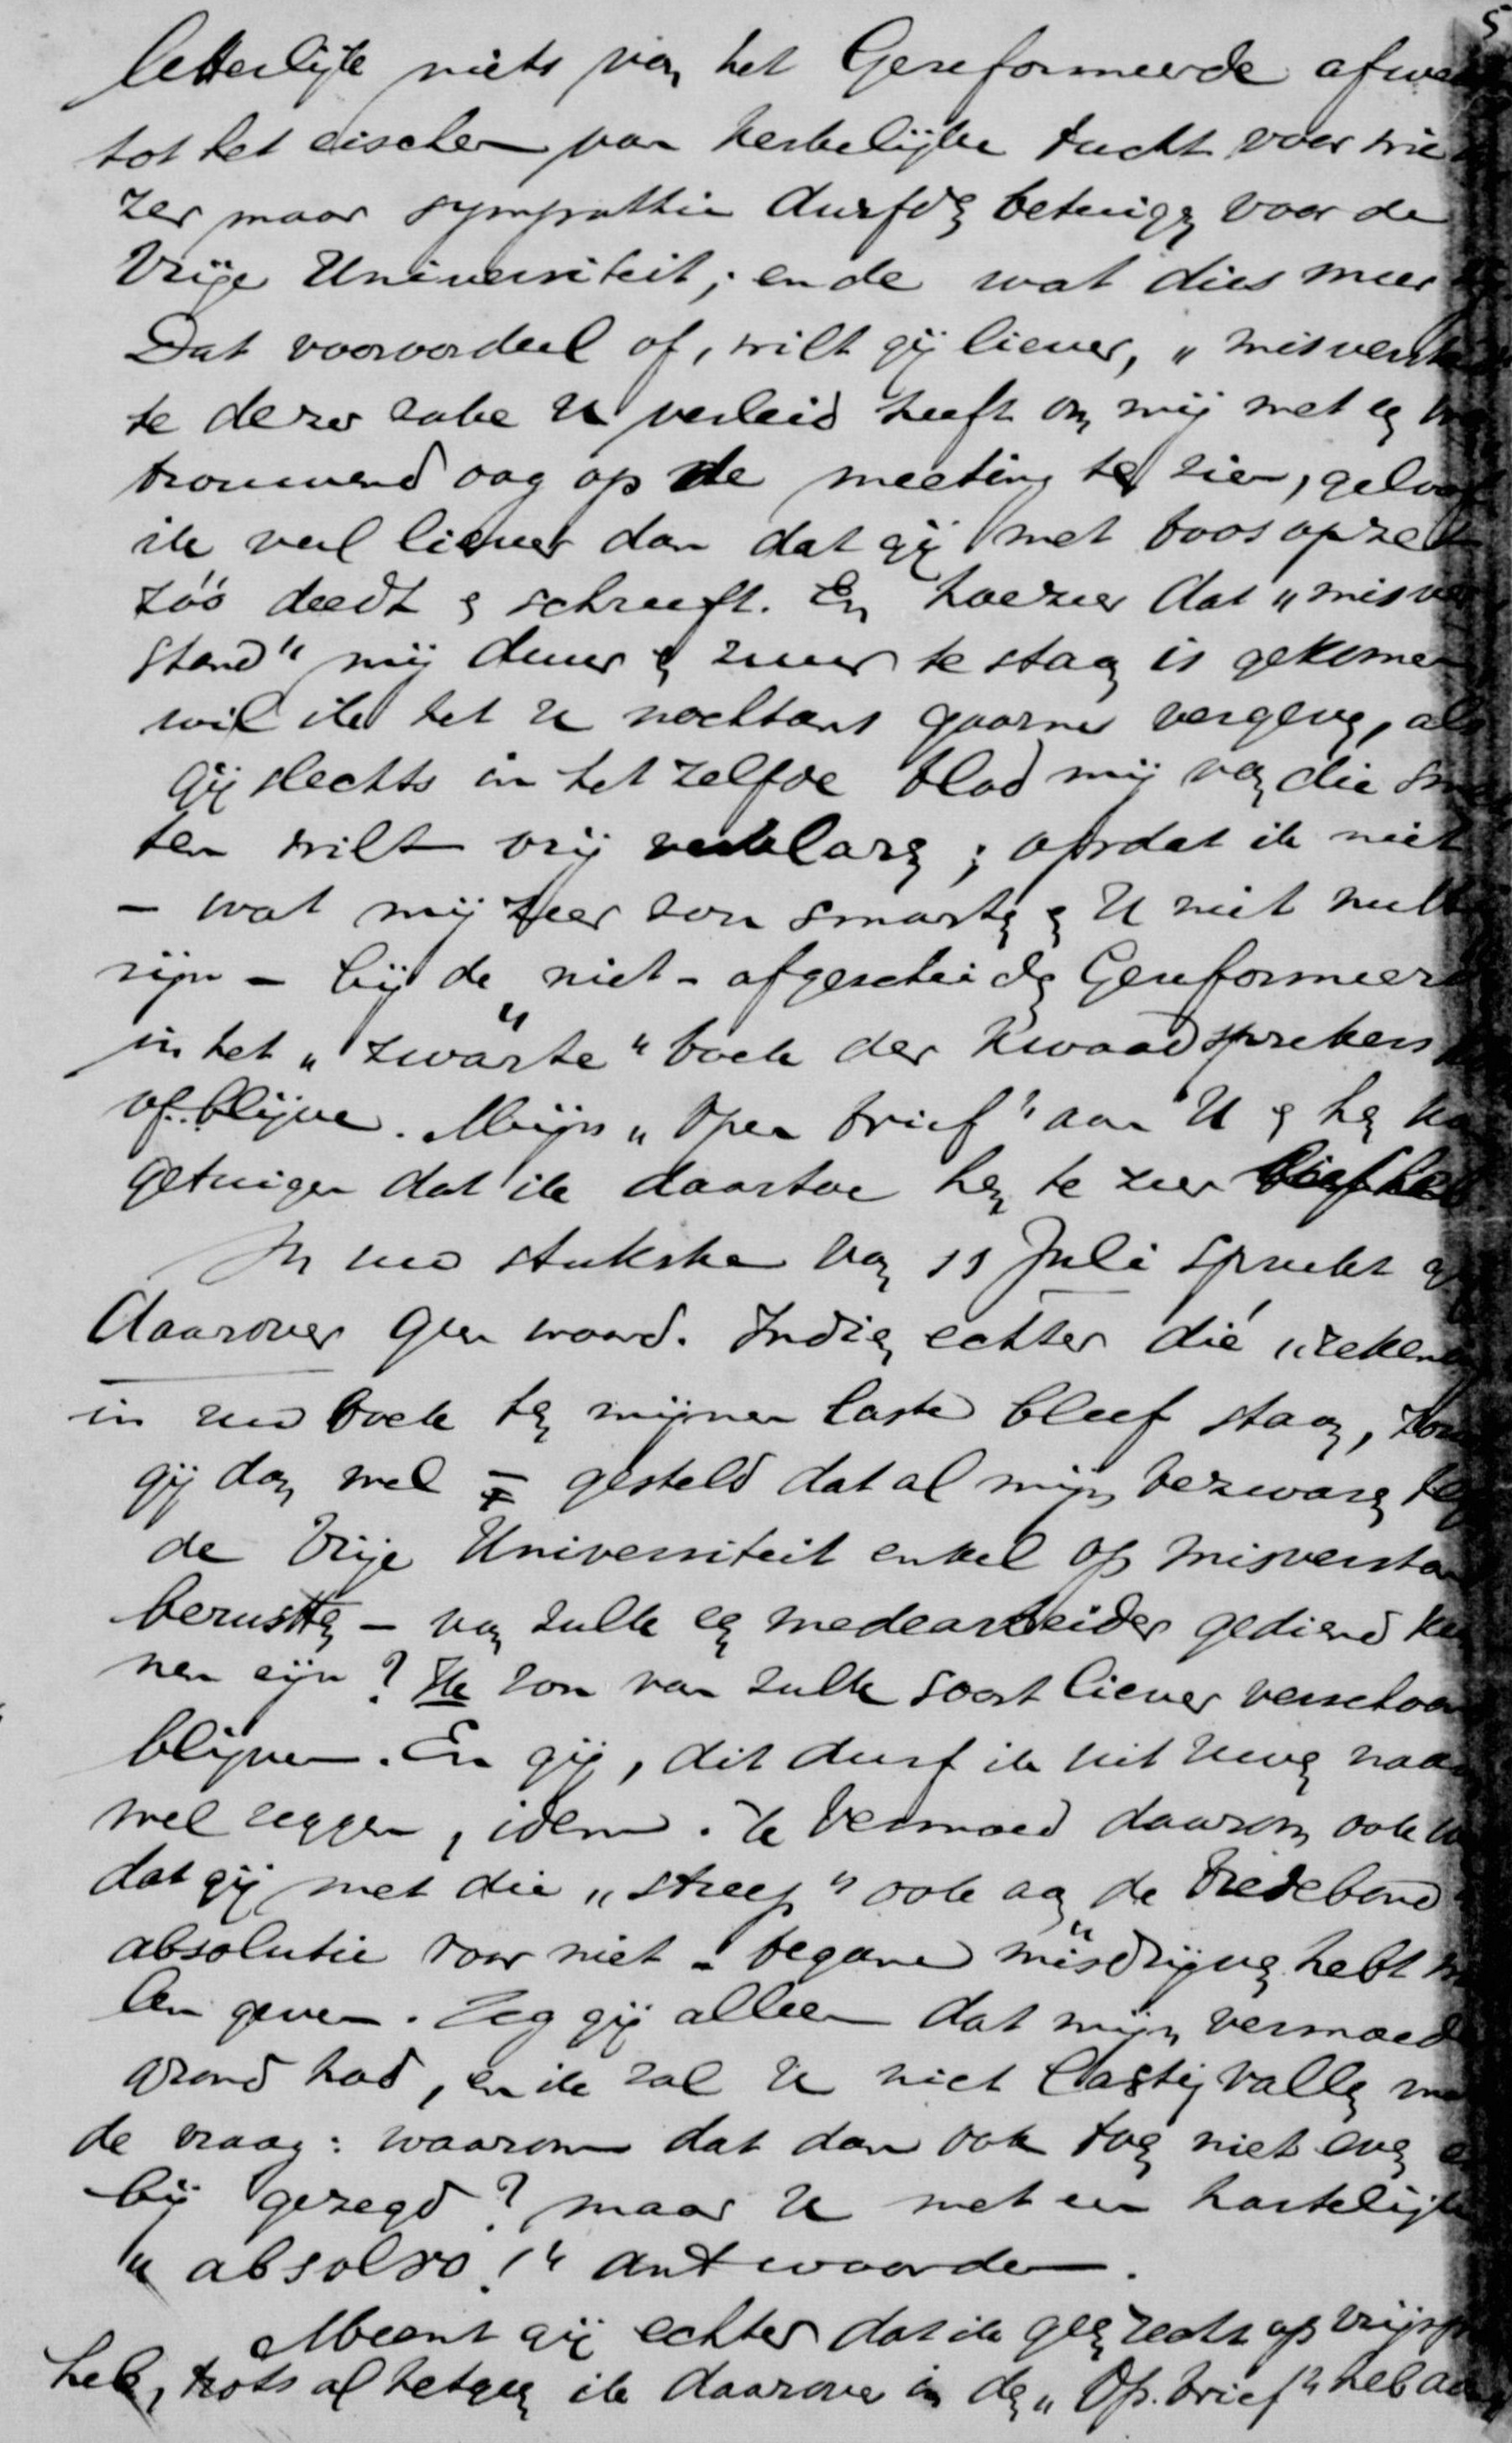 5
letterlijk niets van het Gereformeerde afwe
tot het eischen van kerkelijke tucht voor wie
zer maar sympathie durfden betuigen voor de
Vrije Universiteit; en de wat dies meer
Dat vooroordeel of, wilt gij liever, „misverst
te dezer zake U verleid heeft om mij met een
trouwend oog op de meeting te zien, geloof
ik veel liever dan dat gij met boos opzet
zóó deedt en schreeft. En hoezeer dat „misver
stand" mij duur en zuur te staan is gekomen
wil ik het U nochtans gaarne vergeven, als
gij slechts in het zelfde blad mij van die sm
ten wilt vrij verklaren; opdat ik niet
- wat mij zeer zou smarten en U niet nutt
zijn - bij de „niet-afgescheiden Gereformeer
in het „zwarte" boek der kwaadsprekers
of blijve. Mijn „Open brief" aan U en hen
getuigen dat ik daartoe hen te zeer lief heb
In uw stukske van 11 Juli spreekt
daarover geen woord. Indien echter die „reken
in uw boek ten mijnen laste bleef staan, zou
gij dan wel - gesteld dat al mijn bezwaren
de Vrije Universiteit enkel op misverstan
berustten - van zulk een medearbeider gediend
nen zijn? Ik zou van zulk soort liever verschoon
blijven. En gij, dit durf ik uit uwen naam
wel zeggen, idem. Ik vermoed daarom ook
dat gij met die „streep" ook aan de Vredebond
absolutie voor niet-begane „misdrijven hebt
len geven. Zeg gij alleen dat mijn vermoed
grond had, en ik zal U niet lastig vallen
de vraag: waarom dat dan ook toen niet even
bij gezegd? maar U met een hartelijk
„absolvo!" antwoorden.
Meent gij echter dat ik geen recht op vrijsp
heb, trots al hetgeen ik daarover in den „Op. brief" heb